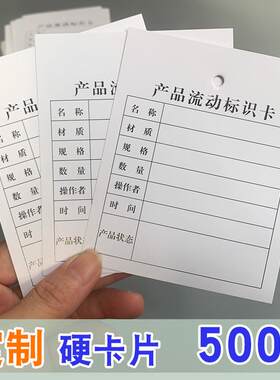 产品流动标识卡
名 称
材 质
规 格
数 量
操作者
时 间
产品状态
产品流
名 称
材 质
规 格
数 量
操作者
时 间
产品状态
产品
名 称
材 质
规 格
数 量
操作者
时 间
产品状态
定制 硬卡片 500